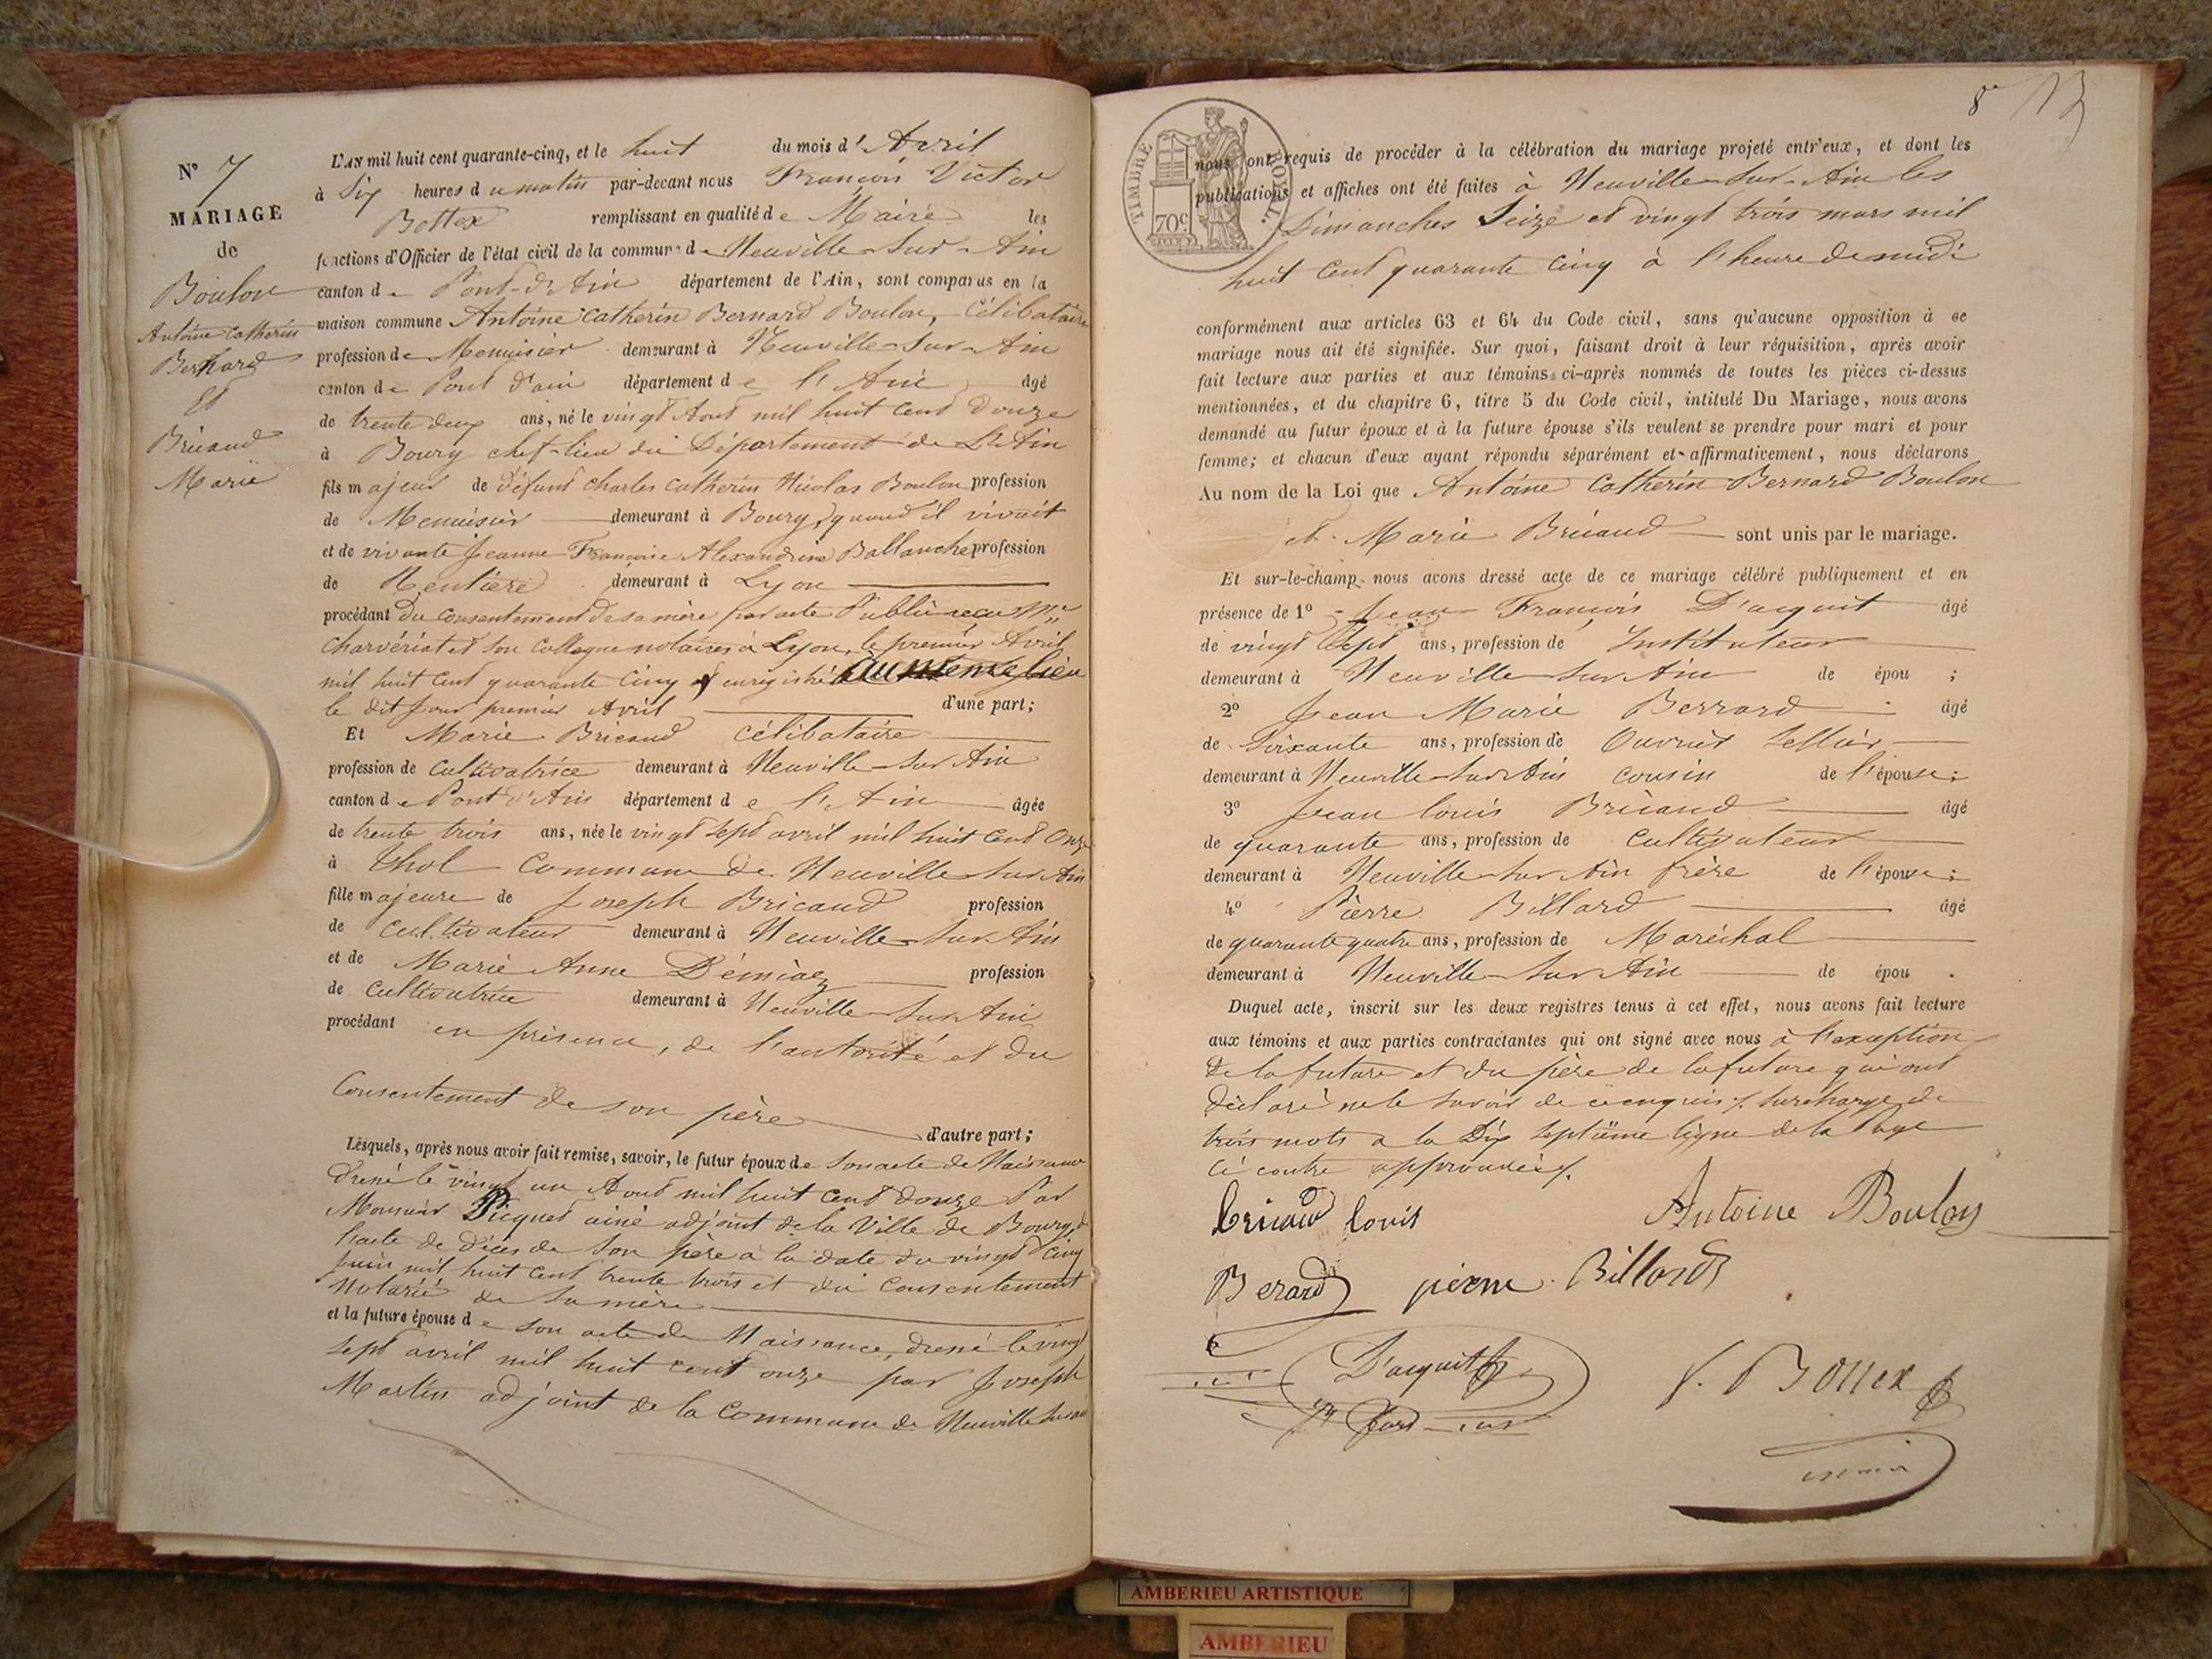 N° 7
MARIAGE
de
Boulon
Antoine Catherin
Bernard
Et
Bricaud
Marie
L'AN mil huit cent quarante-cinq, et le huit du mois d'Avril
à Six heures du matin par-devant nous François Victor
Bottex remplissant en qualité de Maire les
fonctions d'Officier de l'état civil de la commune de Neuville-sur-Ain
canton de Pont-d'Ain département de l'Ain, sont comparus en la
maison commune Antoine Catherin Bernard Boulon, Célibataire
profession de Menuisier demeurant à Neuville-sur-Ain
canton de Pont d'ain département de l'Ain âgé
de trente deux ans, né le vingt Aout mil huit cent douze
à Bourg chef-lieu du Département de L'Ain
fils majeur de défunt Charles Catherin Nicolas Boulon profession
de Menuisier demeurant à Bourg, quand il vivait
et de vivante Jeanne Françoise Alexandrine Ballanche profession
de Rentière demeurant à Lyon
procédant du consentement de sa mère par acte Public reçu Me
Charvériat et son Collegue notaires à Lyon, le premier Avril
mil huit cent quarante cinq et enregistré au même lieu
le dit jour premier Avril d'une part;
Et Marie Bricaud célibataire
profession de cultivatrice demeurant à Neuville-sur Ain
canton de Pont d'Ain département de l'Ain âgée
de trente trois ans, née le vingt sept avril mil huit cent Onze
à Thol Commune de Neuville sur Ain
fille majeure de Joseph Bricaud profession
de cultivateur demeurant à Neuville-sur-Ain
et de Marie Anne Démiaz profession
de cultivatrice demeurant à Neuville-sur Ain
procédant en présence, de l'autorité et du
Consentement de son père
d'autre part;
Lesquels, après nous avoir fait remise, savoir, le futur époux de son acte de Naissance
dressé le vingt un Aout mil huit cent douze Par
Monsieur Picquet ainé adjoint de la Ville de Bourg, de
l'acte de décès de son père à la date du vingt cinq
Juin mil huit cent trente trois et du consentement
Notarié de sa mère
et la future épouse de son acte de Naissance, dressé le vingt
sept avril mil huit cent onze par Joseph
Martin adjoint de la Commune de Neuville sur ain
8e 13
TIMBRE ROYAL.
70c
nous ont requis de procéder à la célébration du mariage projeté entr'eux, et dont les
publications et affiches ont été faites à Neuville-sur-Ain les
Dimanches Seize et vingt trois mars mil
huit cent quarante cinq à l'heure de midi
conformément aux articles 63 et 64 du Code civil, sans qu'aucune opposition à ce
mariage nous ait été signifiée. Sur quoi, faisant droit à leur réquisition, après avoir
fait lecture aux parties et aux témoins ci-après nommés de toutes les pièces ci-dessus
mentionnées, et du chapitre 6, titre 5 du Code civil, intitulé Du Mariage, nous avons
demandé au futur époux et à la future épouse s'ils veulent se prendre pour mari et pour
femme; et chacun d'eux ayant répondu séparément et affirmativement, nous déclarons
Au nom de la Loi que Antoine Catherin Bernard Boulon
et Marie Bricaud sont unis par le mariage.
Et sur-le-champ nous avons dressé acte de ce mariage célébré publiquement et en
présence de 1° Jean François D'acquit âgé
de vingt sept ans, profession de Instituteur
demeurant à Neuville sur Ain de épou ;
2° Jean Marie Berrard âgé
de Soixante ans, profession de Ouvrier Sellier
demeurant à Neuville-sur-Ain cousin de l'épouse;
3° Jean Louis Bricaud âgé
de quarante ans, profession de cultivateur
demeurant à Neuville-sur Ain frère de l'épouse;
4° Pierre Billard âgé
de quarante quatre ans, profession de Maréchal
demeurant à Neuville-sur-Ain de épou .
Duquel acte, inscrit sur les deux registres tenus à cet effet, nous avons fait lecture
aux témoins et aux parties contractantes qui ont signé avec nous à l'exception
de la future et du père de la future qui ont
déclaré ne le savoir de ce enquis /. surcharge de
trois mots a la Dix septième ligne de la Page
ci contre approuvée /.
bricaud louis Antoine Boulon
Berard pierre Billard
D'acquit f. Bottex
AMBERIEU ARTISTIQUE
AMBERIEU